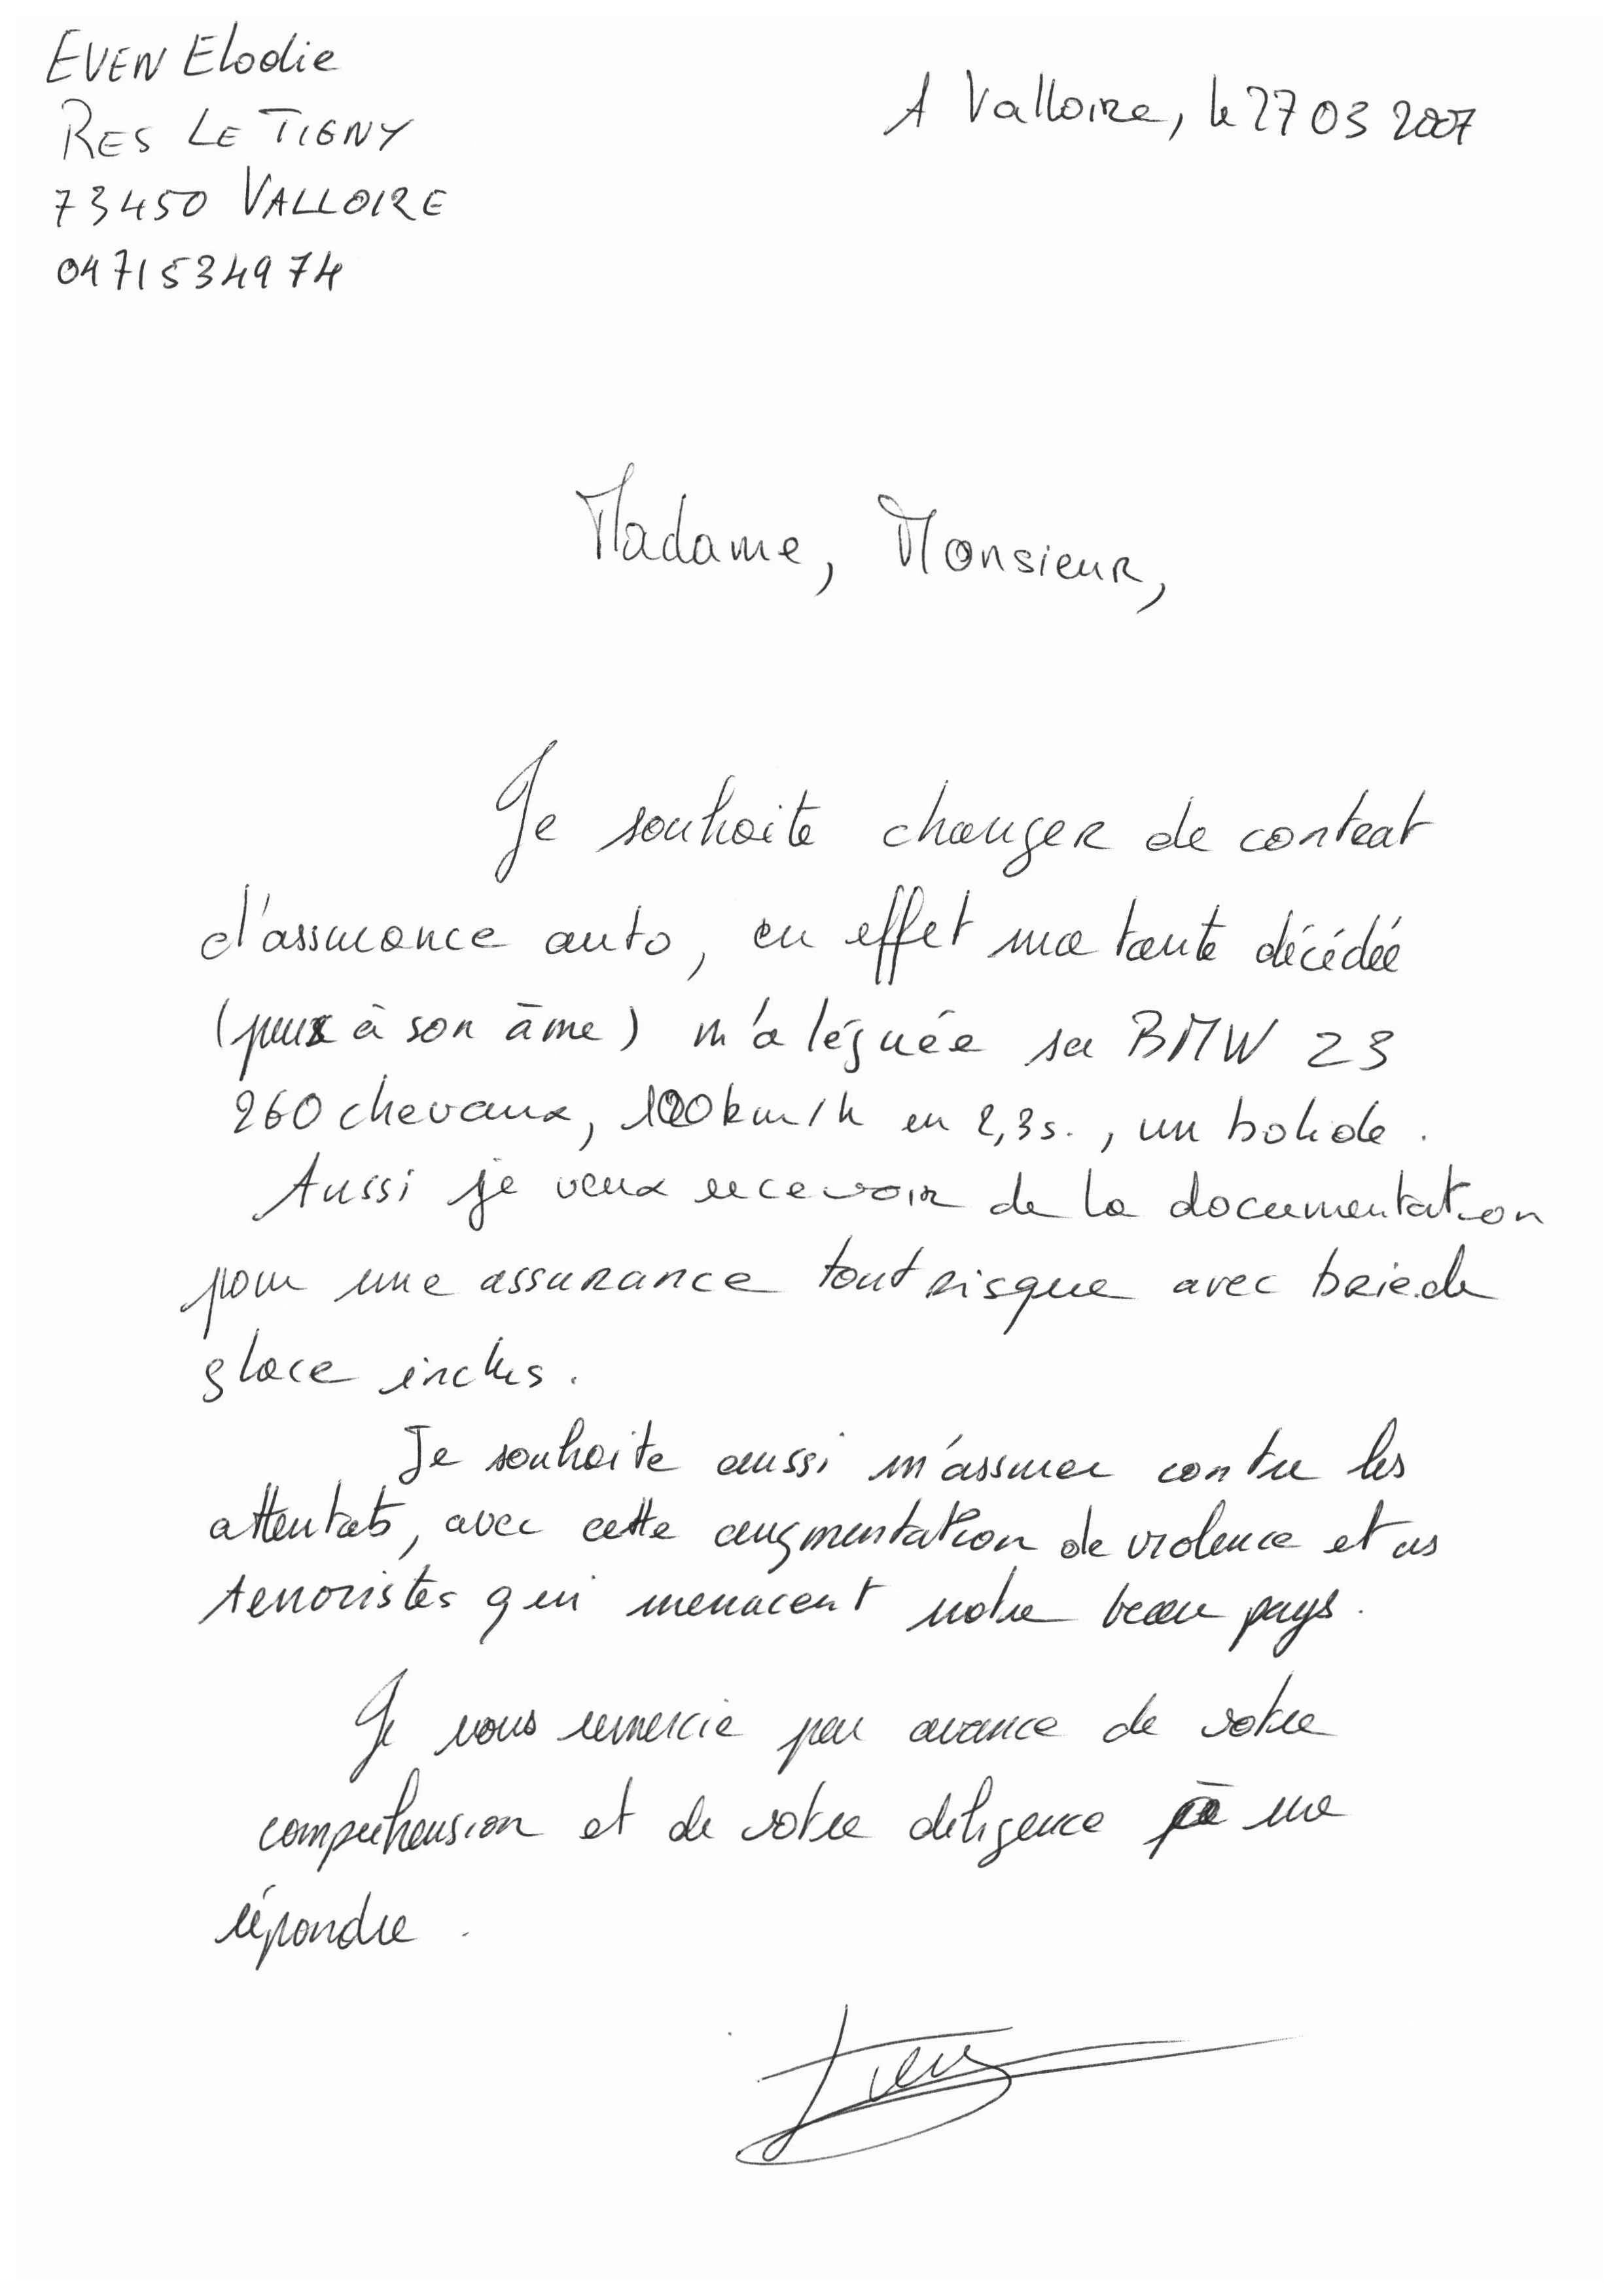 EVEN Elodie
RES LE TIGNY
73450 VALLOIRE
0471534974
A Valloire, le 27 03 2007
Madame, Monsieur,
Je souhaite changer de contrat
d'assurance auto, en effet ma tante décédée
(paix à son âme) m'a léguée sa BMW Z3
260 chevaux, 100 km/h en 2,3s., un bolide.
Aussi je veux recevoir de la documentation
pour une assurance tout risque avec brie de
glace inclus.
Je souhaite aussi m'assurer contre les
attentats, avec cette augmentation de violence et ces
terroristes qui menacent notre beau pays.
Je vous remercie par avance de votre
compréhension et de votre diligence à me
répondre.
Even